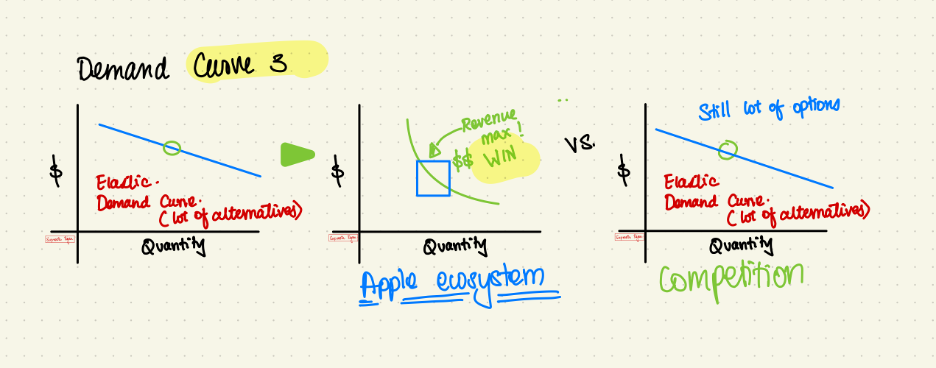 Demand Curve 3
$
Elastic.
Demand Curve.
(lot of alternatives)
Quantity
$
Revenue
max!
$$ WIN
Quantity
Apple ecosystem
VS.
Still lot of options
$
Elastic
Demand Curve.
(lot of alternatives)
Quantity
Competition